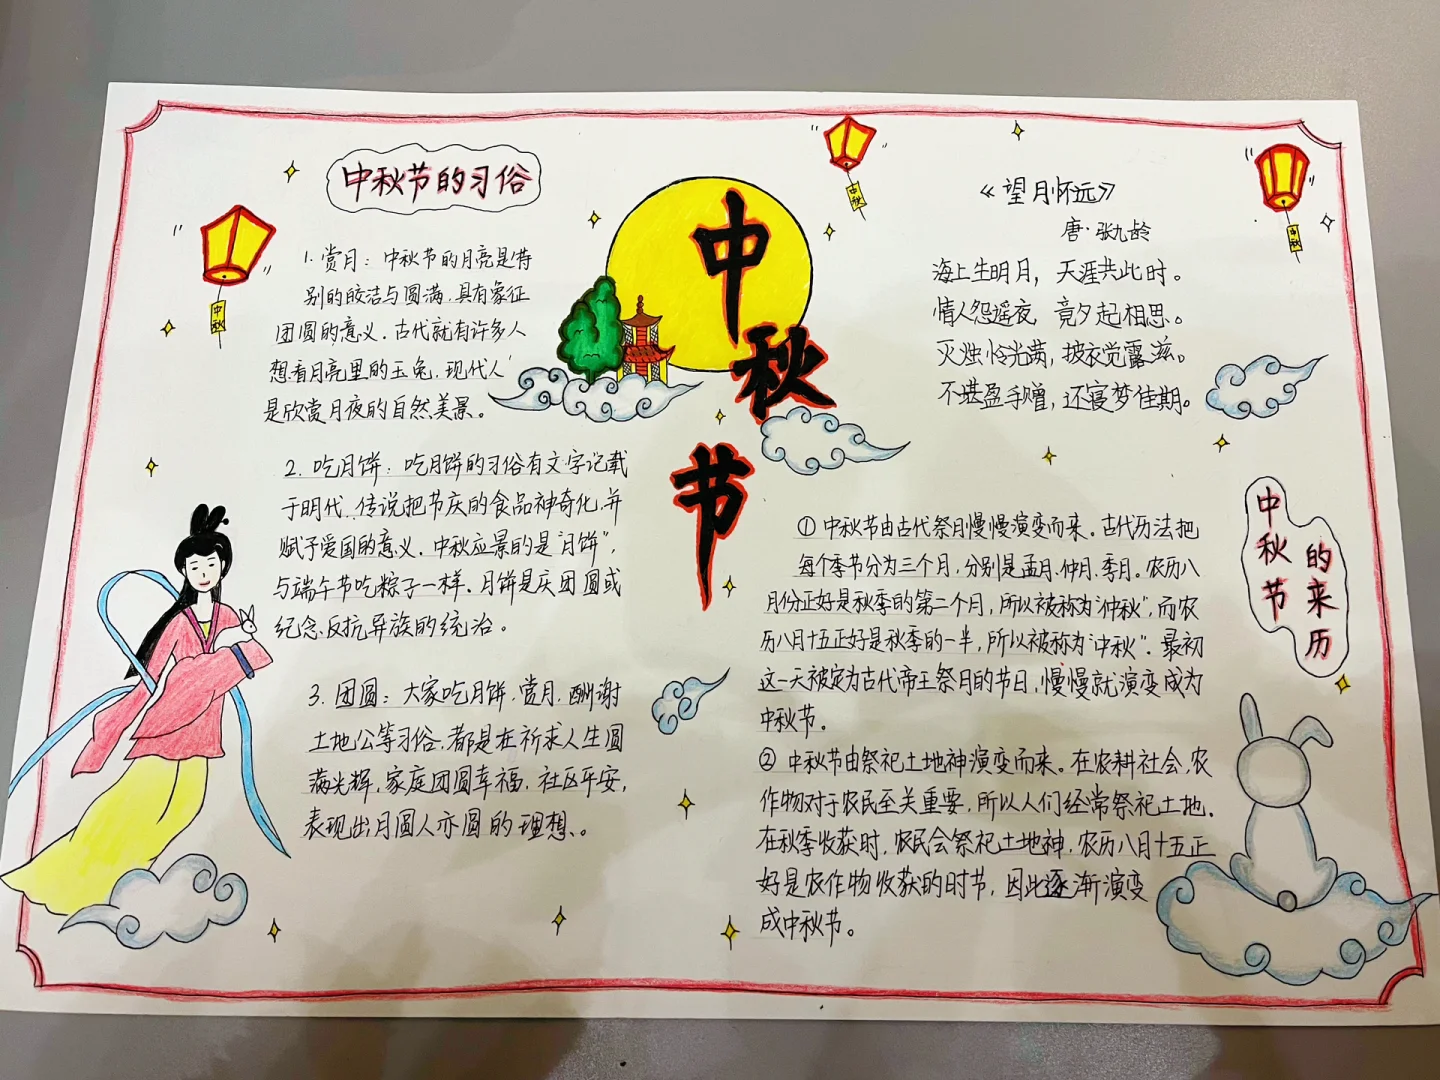 中秋节的习俗
1. 赏月：中秋节的月亮是特
别的皎洁与圆满，具有象征
团圆的意义．古代就有许多人
想看月亮里的玉兔，现代人
是欣赏月夜的自然美景。
2. 吃月饼：吃月饼的习俗有文字记载
于明代．传说把节庆的食品神奇化，并
赋予爱国的意义．中秋应景的是“月饼”，
与端午节吃粽子一样．月饼是庆团圆或
纪念反抗异族的统治。
3. 团圆：大家吃月饼．赏月．酬谢
土地公等习俗，都是在祈求人生圆
满光辉，家庭团圆幸福，社区平安，
表现出月圆人亦圆的理想。
中秋
中
秋
节
中秋
中秋
《望月怀远》
唐·张九龄
海上生明月，天涯共此时。
情人怨遥夜，竟夕起相思。
灭烛怜光满，披衣觉露滋。
不堪盈手赠，还寝梦佳期。
中秋节
的来历
① 中秋节由古代祭月慢慢演变而来。古代历法把
每个季节分为三个月，分别是孟月、仲月、季月。农历八
月份正好是秋季的第二个月，所以被称为“仲秋”，而农
历八月十五正好是秋季的一半，所以被称为“中秋”．最初
这一天被定为古代帝王祭月的节日，慢慢就演变成为
中秋节。
② 中秋节由祭祀土地神演变而来。在农耕社会，农
作物对于农民至关重要，所以人们经常祭祀土地．
在秋季收获时，农民会祭祀土地神，农历八月十五正
好是农作物收获的时节，因此逐渐演变
成中秋节。